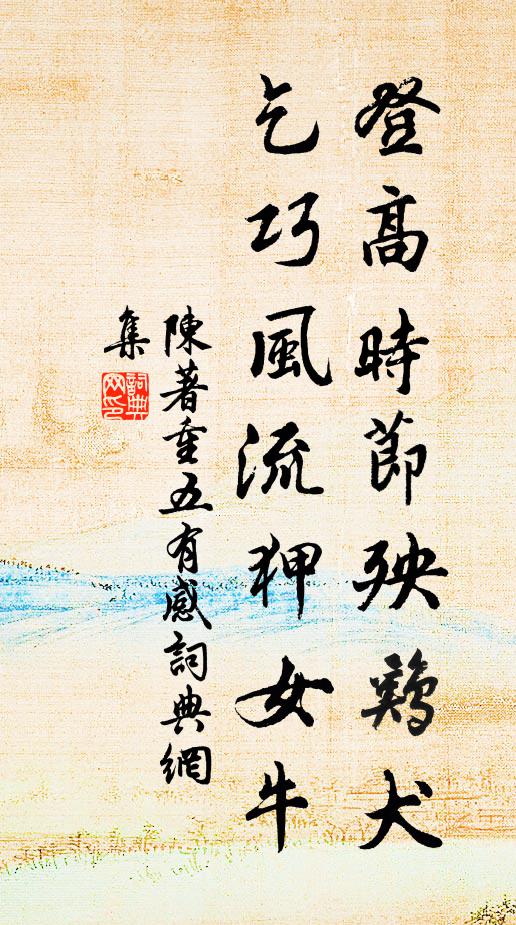 登高時節殃鷄犬
乞巧風流狎女牛
陳著重五有感詞典網
集
詞典
网印